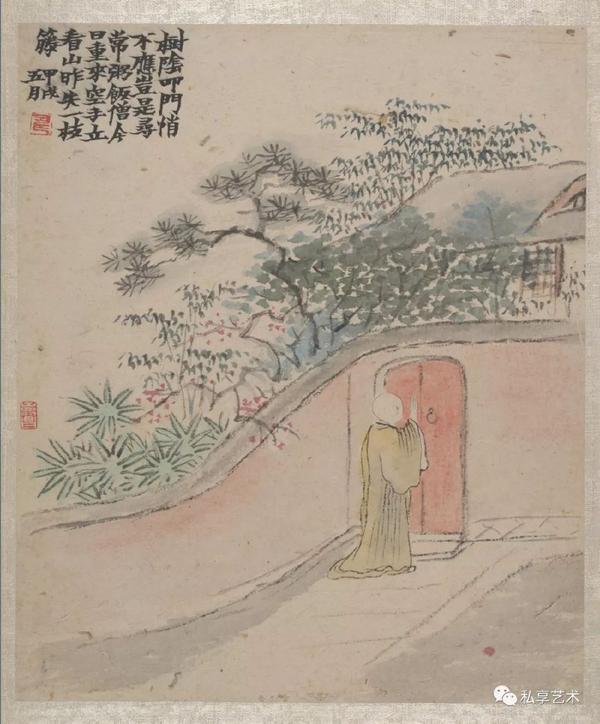 樹陰叩門悄
不應豈是尋
常粥飯僧今
日重來空手立
看山昨失一枝
籐 甲戌
五月
私享艺术